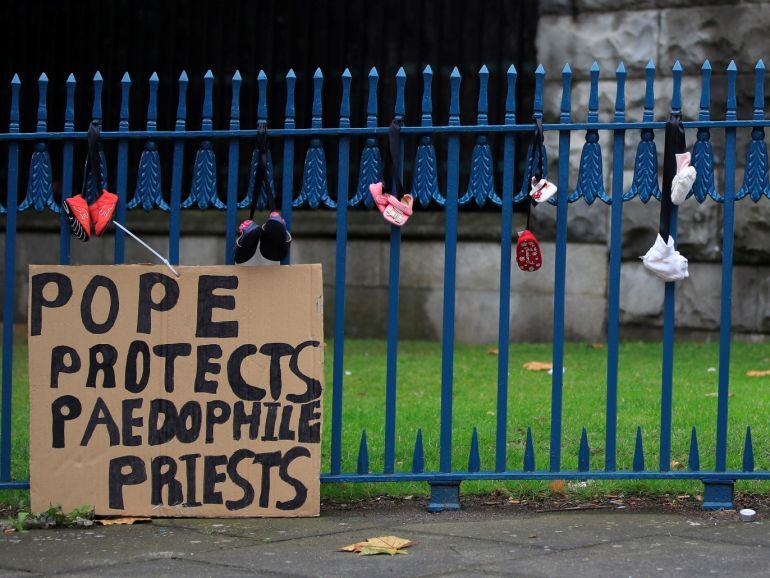 POPE
PROTECTS
PAEDOPHILE
PRIESTS